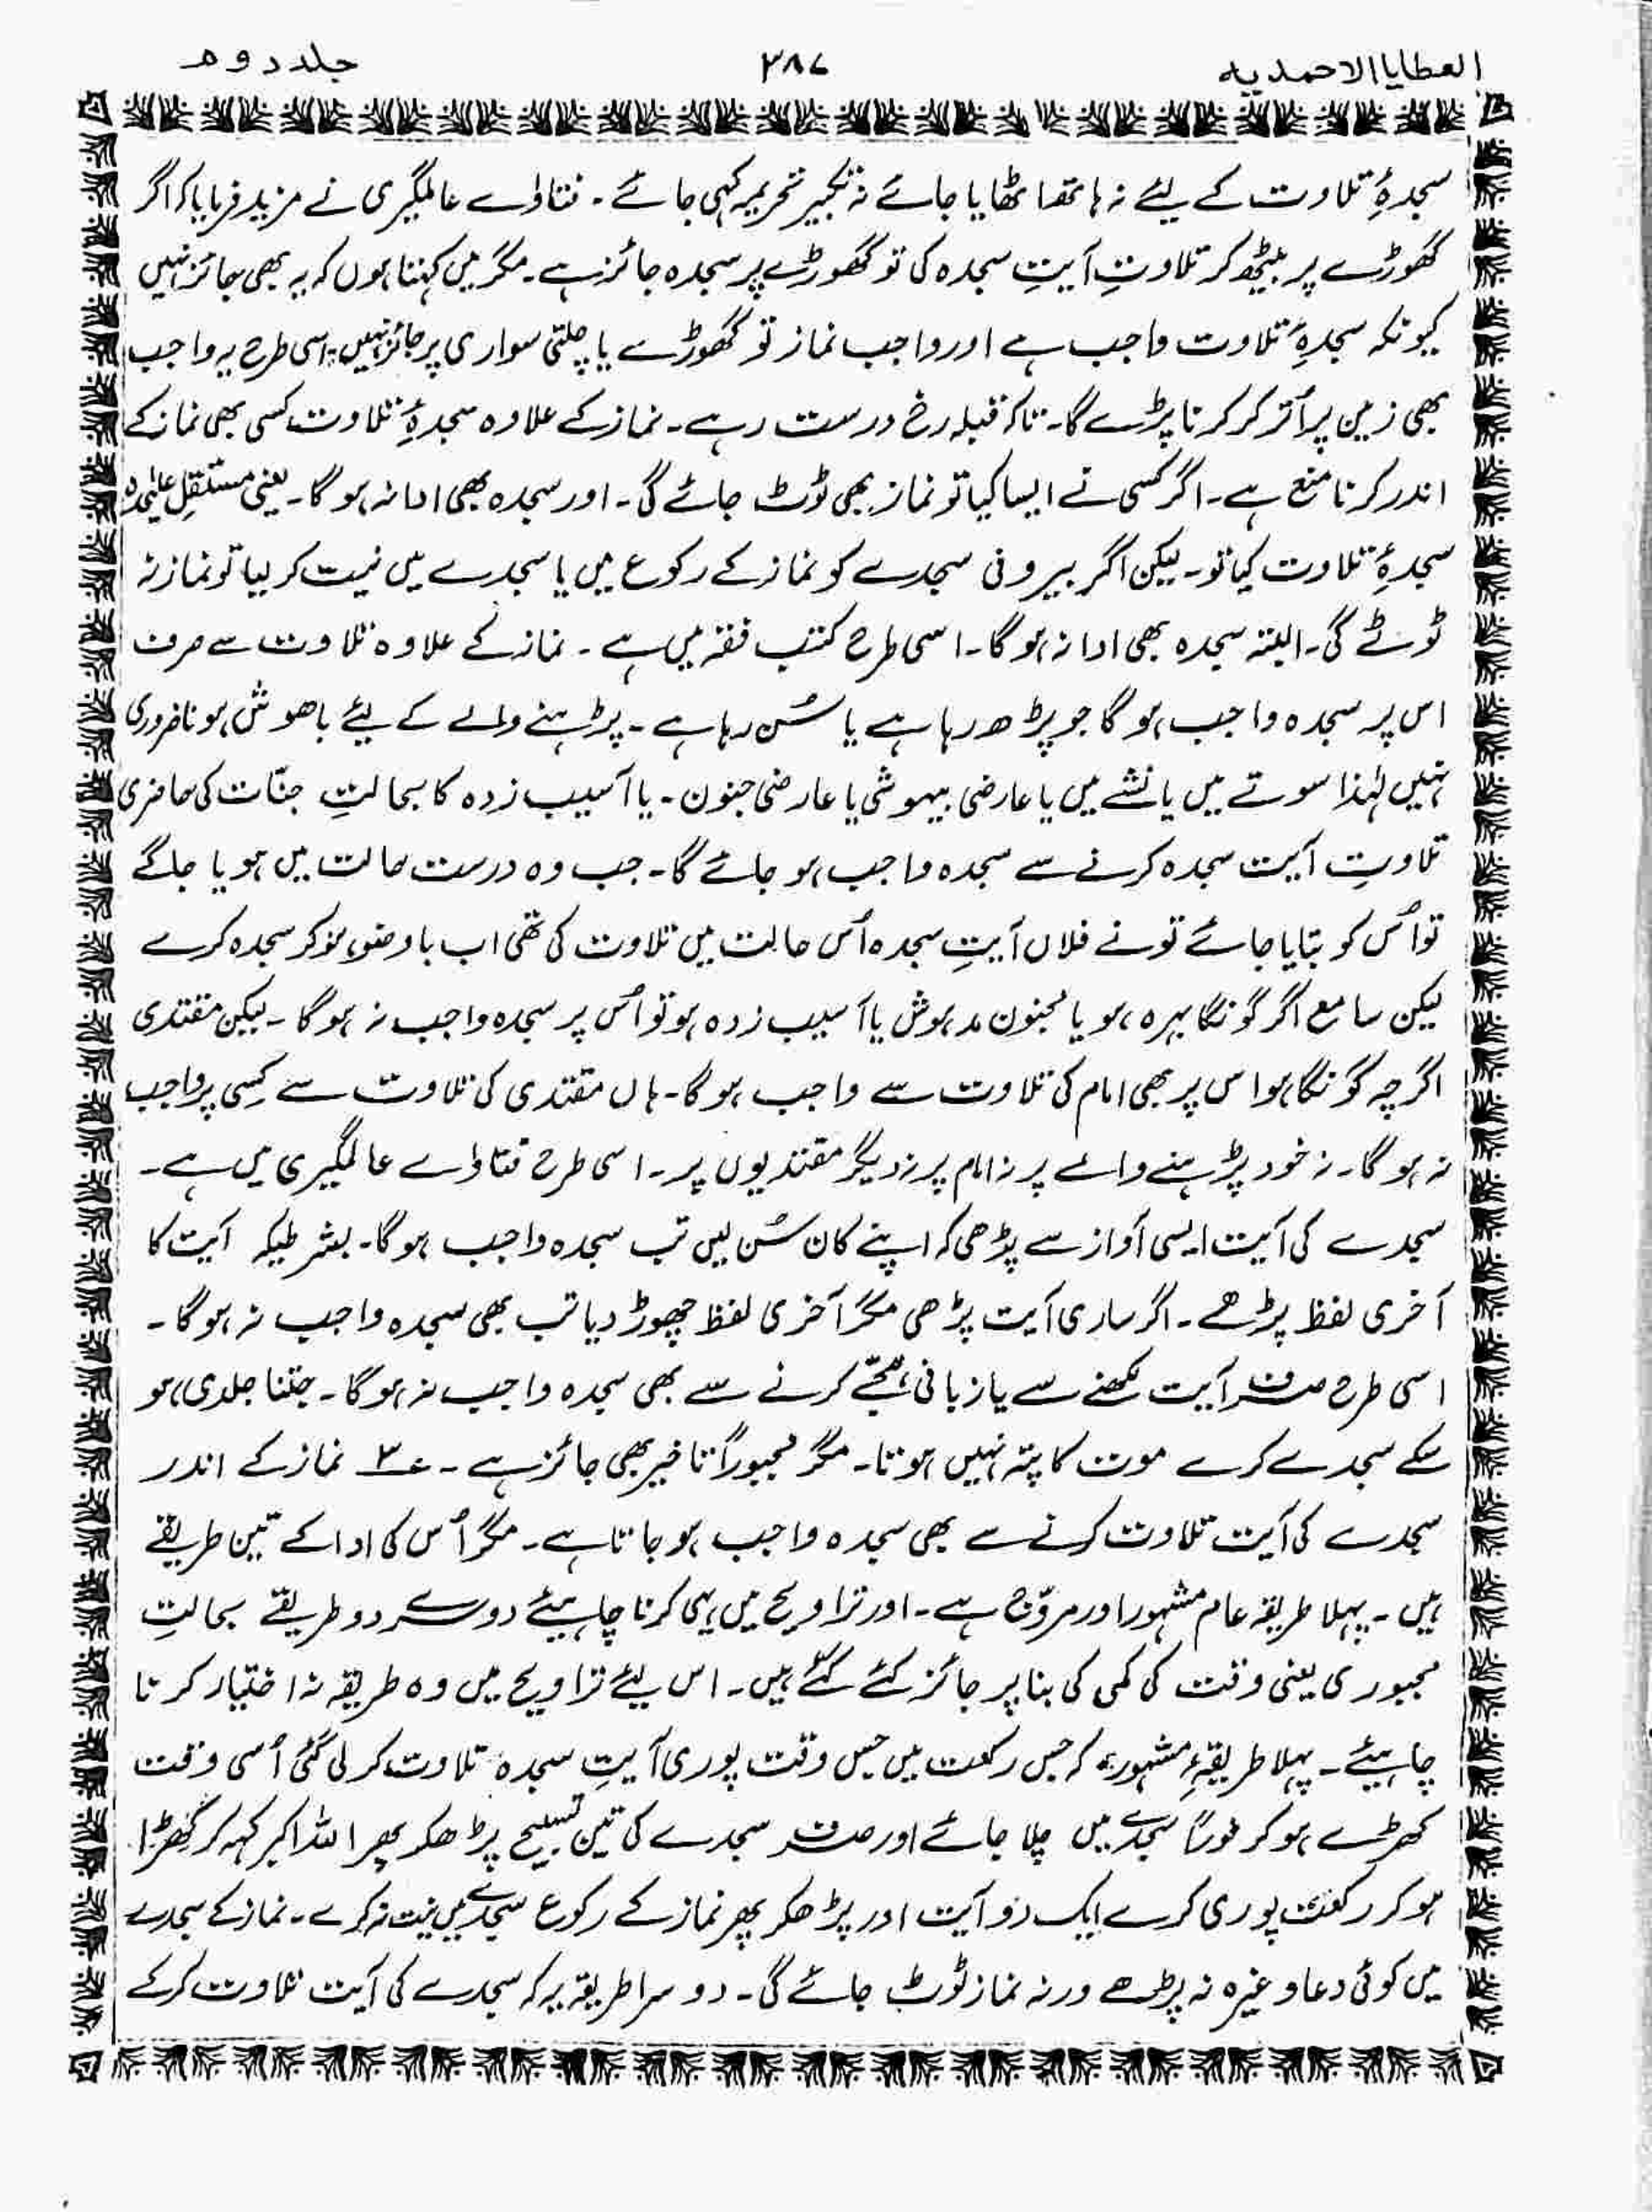 العطایا الاحمدیہ ۳۸۷ جلد دوم
سجدۂِ تلاوت کے لیئے نہ ہاتھ اٹھایا جائے نہ تکبیر تحریمہ کہی جائے ۔ فتاوٰے عالمگیری نے مزید فرمایا کہ اگر
گھوڑے پر بیٹھ کر تلاوتِ آیتِ سجدہ کی تو گھوڑے پر سجدہ جائز ہے۔ مگر میں کہتا ہوں کہ یہ بھی جائز نہیں
کیونکہ سجدۂِ تلاوت واجب ہے اور واجب نماز تو گھوڑے یا چلتی سواری پر جائز نہیں۔ اسی طرح یہ واجب
بھی زمین پر اُتر کر کرنا پڑے گا۔ تاکہ قبلہ رخ درست رہے۔ نماز کے علاوہ سجدۂِ تلاوت کسی بھی نماز کے
اندر کرنا منع ہے۔ اگر کسی نے ایسا کیا تو نماز بھی ٹوٹ جائے گی۔ اور سجدہ بھی ادا نہ ہو گا۔ یعنی مستقل علیٰحدہ
سجدۂِ تلاوت کیا تو۔ لیکن اگر بیرونی سجدے کو نماز کے رکوع میں یا سجدے میں نیت کر لیا تو نماز نہ
ٹوٹے گی۔ البتہ سجدہ بھی ادا نہ ہو گا۔ اسی طرح کتب فقہ میں ہے ۔ نماز کے علاوہ تلاوت سے صرف
اس پر سجدہ واجب ہو گا جو پڑھ رہا ہے یا سُن رہا ہے ۔ پڑہنے والے کے لیئے باھوش ہونا ضروری
نہیں لہٰذا سوتے میں یا نشے میں یا عارضی بیہوشی یا عارضی جنون۔ یا آسیب زدہ کا بحالتِ جنّات کی حاضری
تلاوتِ آیت سجدہ کرنے سے سجدہ واجب ہو جائے گا۔ جب وہ درست حالت میں ہو یا جاگے
تو اُس کو بتایا جائے تو نے فلاں آیتِ سجدہ اُس حالت میں تلاوت کی تھی اب باوضو ہو کر سجدہ کرے
لیکن سامع اگر گونگا بہرہ ہو یا مجنون مدہوش یا آسیب زدہ ہو تو اُس پر سجدہ واجب نہ ہو گا ۔ لیکن مقتدی
اگرچہ گونگا ہو اس پر بھی امام کی تلاوت سے واجب ہو گا۔ ہاں مقتدی کی تلاوت سے کِسی پر واجب
نہ ہو گا۔ نہ خود پڑہنے والے پر نہ امام پر نہ دیگر مقتدیوں پر۔ اسی طرح فتاواے عالمگیری میں ہے۔
سجدے کی آیت ایسی آواز سے پڑھی کہ اپنے کان سُن لیں تب سجدہ واجب ہو گا۔ بشرطیکہ آیت کا
آخری لفظ پڑھے ۔ اگر ساری آیت پڑھی مگر آخری لفظ چھوڑ دیا تب بھی سجدہ واجب نہ ہو گا ۔
اسی طرح صرف آیت لکھنے سے یا زبانی ہجّے کرنے سے بھی سجدہ واجب نہ ہو گا ۔ جتنا جلدی ہو
سکے سجدے کرے موت کا پتہ نہیں ہوتا۔ مگر مجبوراً تاخیر بھی جائز ہے ۔ ۳؎ نماز کے اندر
سجدے کی آیت تلاوت کرنے سے بھی سجدہ واجب ہو جاتا ہے۔ مگر اُس کی ادا کے تین طریقے
ہیں ۔ پہلا طریقہ عام مشہور اور مروّج ہے۔ اور تراویح میں یہی کرنا چاہیئے دوسرے دو طریقے بحالتِ
مجبوری یعنی وقت کی کمی کی بنا پر جائز کئے گئے ہیں۔ اس لیئے تراویح میں وہ طریقہ نہ اختیار کرنا
چاہیئے ۔ پہلا طریقۂِ مشہورہ کہ جس رکعت میں جس وقت پوری آیتِ سجدہ تلاوت کر لی گئی اُسی وقت
کھڑے ہو کر فوراً سجدے میں چلا جائے اور صرف سجدے کی تین تسبیح پڑھکر پھر اللہ اکبر کہہ کر کھڑا
ہو کر رکعت پوری کرے ایک دو آیت اور پڑھکر پھر نماز کے رکوع سجدے میں نیت نہ کرے ۔ نماز کے سجدے
میں کوئی دعا وغیرہ نہ پڑھے ورنہ نماز ٹوٹ جائے گی۔ دوسرا طریقہ یہ کہ سجدے کی آیت تلاوت کر کے